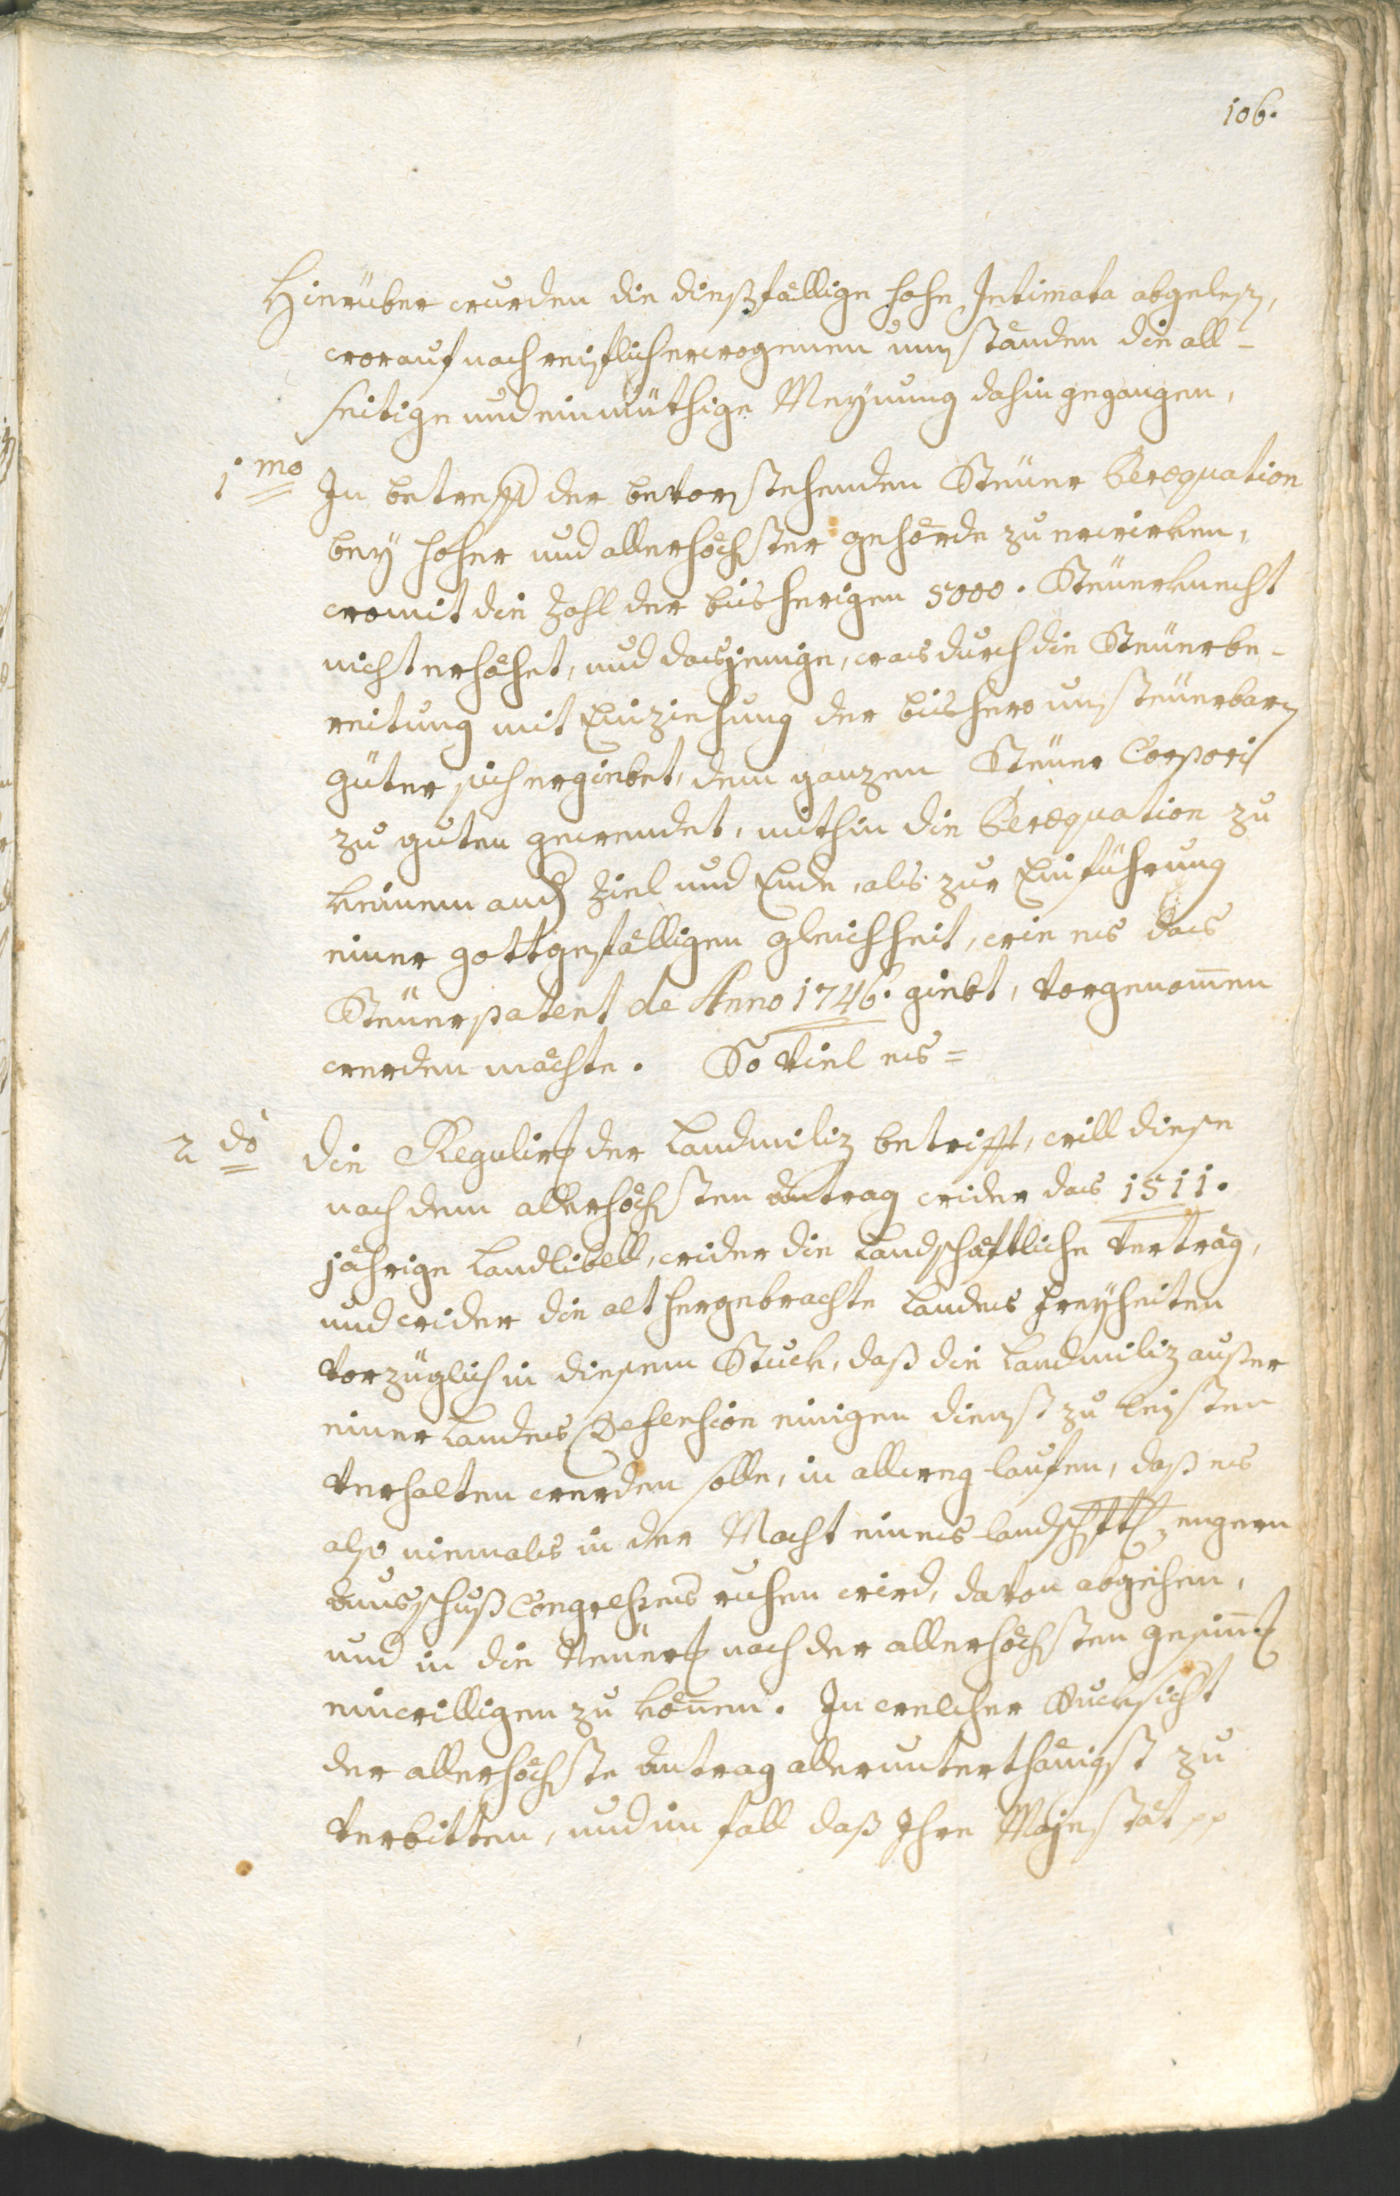 106.
Hierüber wurden die dießfällige hohe Intimata abgelesen,
worauf nach reiflich erwogenen umständen die all-
seitige und einmüthige Meynung dahin gegangen,
1mo In betreff der bevorstehenden Steuer Peræquation
bey hoher und allerhöchster gehörde zu erwirken,
womit die Zahl der bisherigen 5000. Steuerknecht
nicht erhöhet, und dasjenige, was durch die Steuerbe-
reitung mit Einziehung der bishero unsteuerbaren
güter sich ergiebet, dem ganzen Steuer Corpori
zu guten gewendet, mithin die Peræquation zu
keinem and. Ziel und Ende, als zur Einführung
einer gottgefälligen gleichheit, wie es das
Steuerpatent de Anno 1746. giebt, vorgenom̅en
werden möchte. So viel es =
2do die Regulirung der Landmiliz betrifft, will diese
nach dem allerhöchsten antrag wider das 1511.
jährige Landlibell, wider die Landschäftliche Verträg,
und wider die alt hergebrachte Landes Freyheiten
vorzüglich in diesem Stuck, daß die Landmiliz außer
einer Landes Defension einigen dienst zu leisten
verhalten werden solle, in allweg laufen, daß es
also niemals in der Macht eines landschftl. engern
ausschuß Congresses ruhen wird, davon abzugehen,
und in die Neuerung nach der allerhöchsten gesinnung
einwilligen zu kön̅en. In welcher Rucksicht
der allerhöchste antrag allerunterthänigst zu
verbitten, und im fall daß Ihre Majestät pp